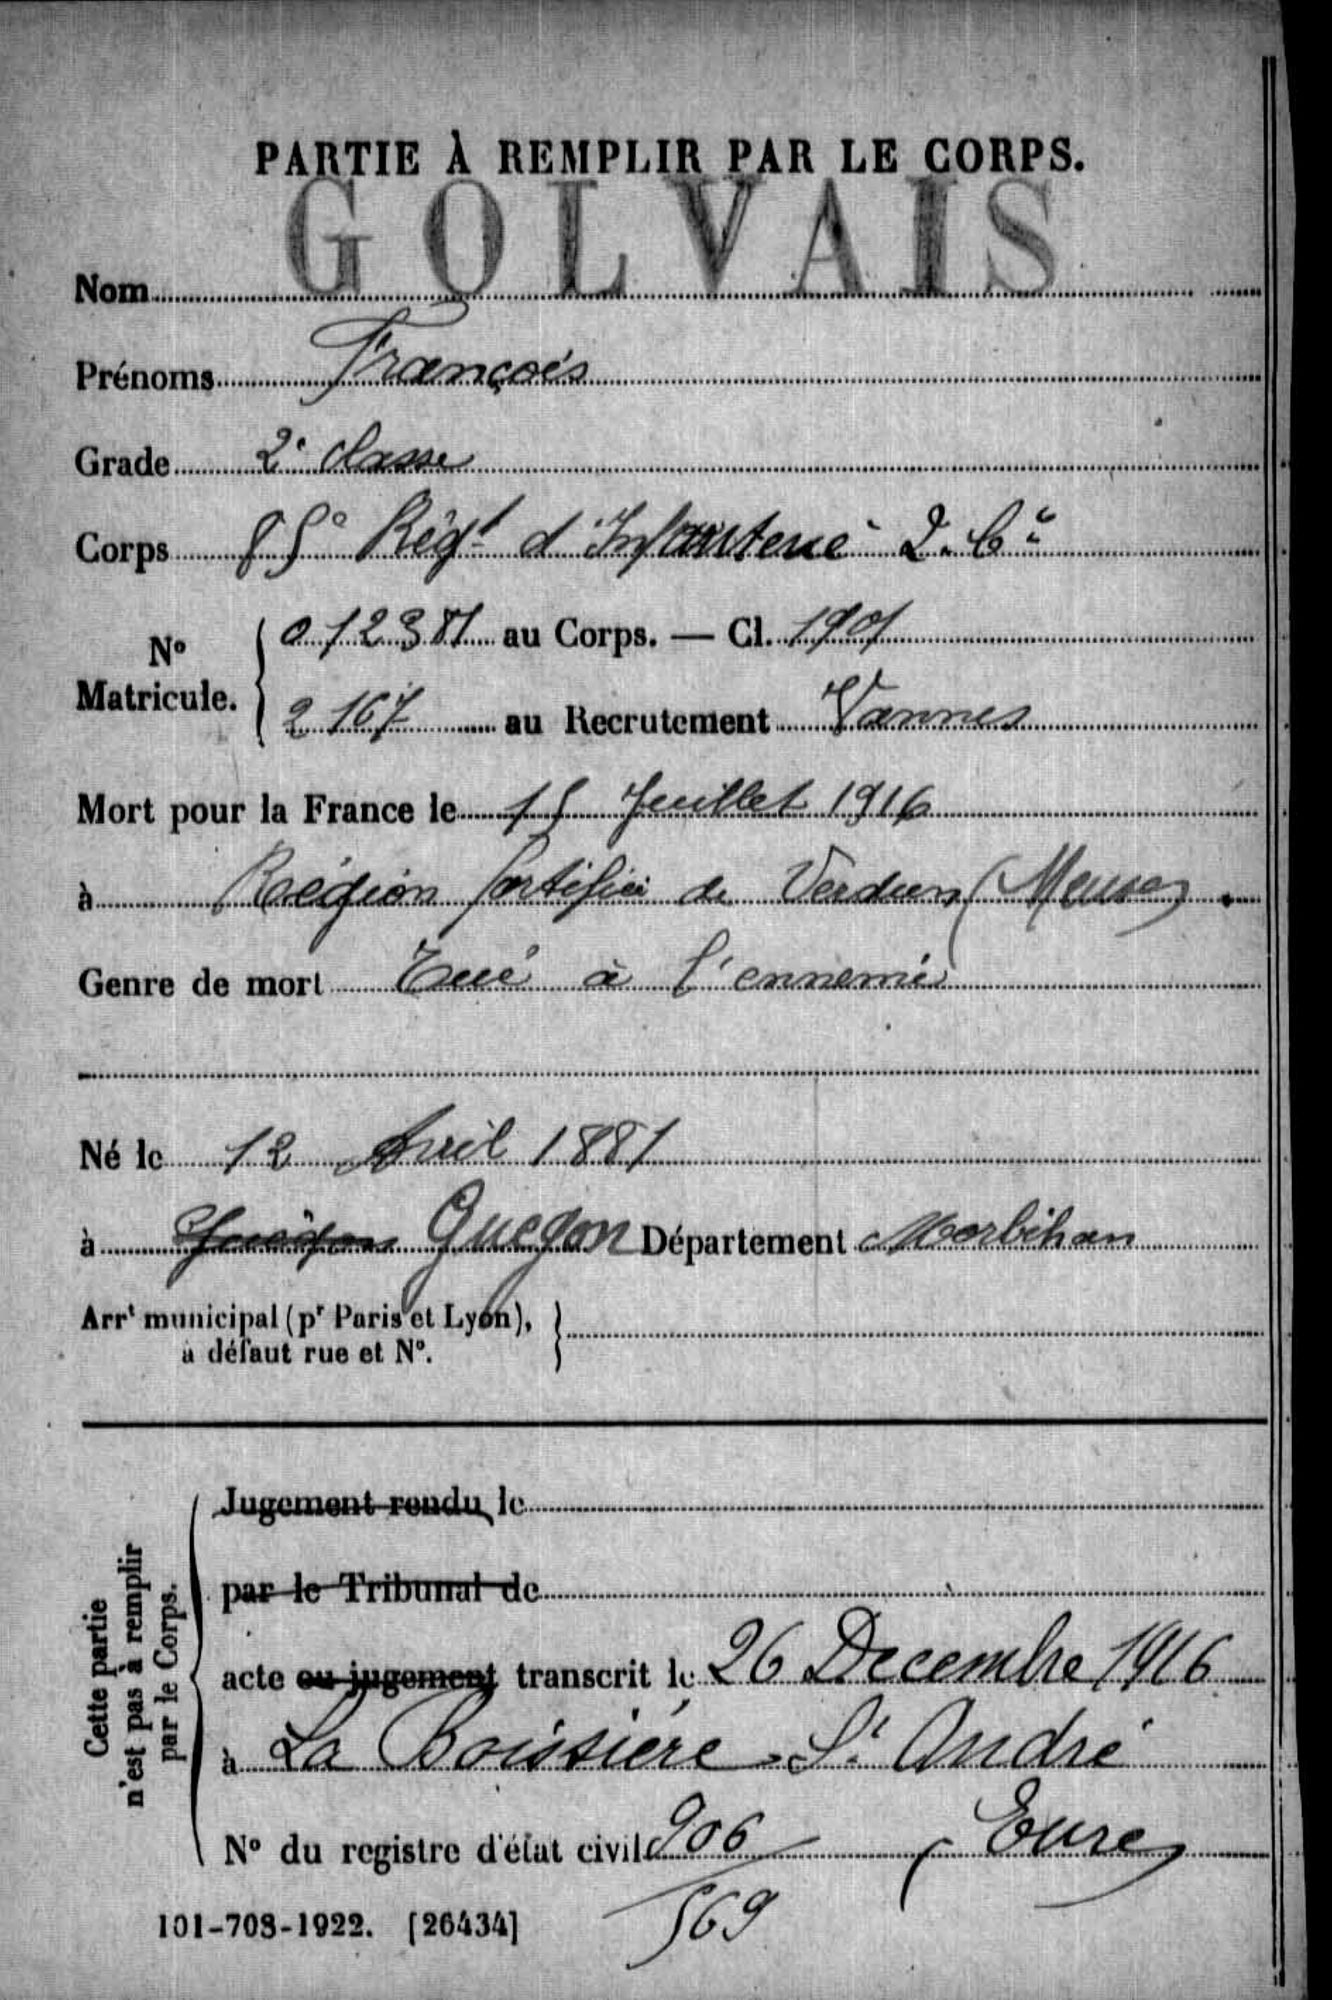 PARTIE À REMPLIR PAR LE CORPS.
Nom GOLVAIS
Prénoms François
Grade 2e classe
Corps 85e Régt d'Infanterie 2e Cie
No Matricule. 012381 au Corps. — Cl. 1901
2167 au Recrutement Vannes
Mort pour la France le 15 Juillet 1916
à Région fortifiée de Verdun (Meuse)
Genre de mort Tué à l'ennemi
Né le 12 Avril 1881
à Guégon Guegon Département Morbihan
Arrt municipal (pr Paris et Lyon),
à défaut rue et No.
Cette partie
n'est pas à remplir
par le Corps.
Jugement rendu le
par le Tribunal de
acte ou jugement transcrit le 26 Decembre 1916
à La Boissière St André
No du registre d'état civil 906 (Eure)
569
101-708-1922. [26434]